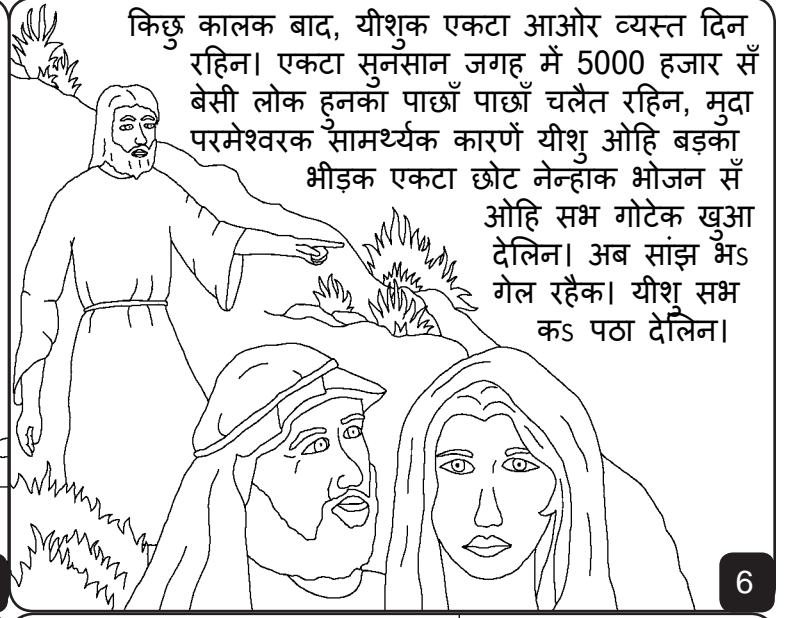 किछु कालक बाद, यीशुक एकटा आओर व्यस्त दिन
रहिन। एकटा सुनसान जगह में 5000 हजार सँ
बेसी लोक हुनका पाछाँ पाछाँ चलैत रहिन, मुदा
परमेश्वरक सामर्थ्यक कारणें यीशु ओहि बड़का
भीड़क एकटा छोट नेन्हाक भोजन सँ
ओहि सभ गोटेक खुआ
देलिन। अब सांझ भऽ
गेल रहैक। यीशु सभ
कऽ पठा देलिन।
6